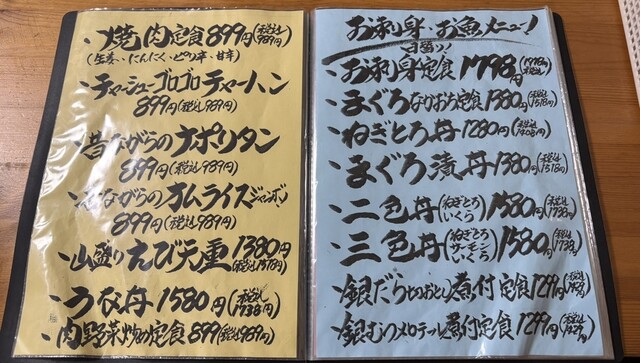 ・焼肉定食899円(税込989円)
(生姜・にんにく・ピリ辛・甘辛)
・チャーシューゴロゴロチャーハン
899円(税込989円)
・昔ながらのナポリタン
899円(税込989円)
・昔ながらのオムライスジャンボン
899円(税込989円)
・山盛りえび天重1380円(税込1518円)
・うな丼1580円(税込1738円)
・肉野菜炒め定食899(税込989円)
お刺身 お魚メニュー!
日替り!
・お刺身定食1798円
・まぐろなかおち定食1380円(税込1518円)
・ねぎとろ丼1280円(税込1408円)
・まぐろ漬丼1380円(税込1518円)
・二色丼(ねぎとろ いくら)1580円(税込1738円)
・三色丼(ねぎとろ サーモン いくら)1580円(税込1738)
・銀だら切りおとし煮付定食1299円
・銀むつメロテール煮付定食1299円